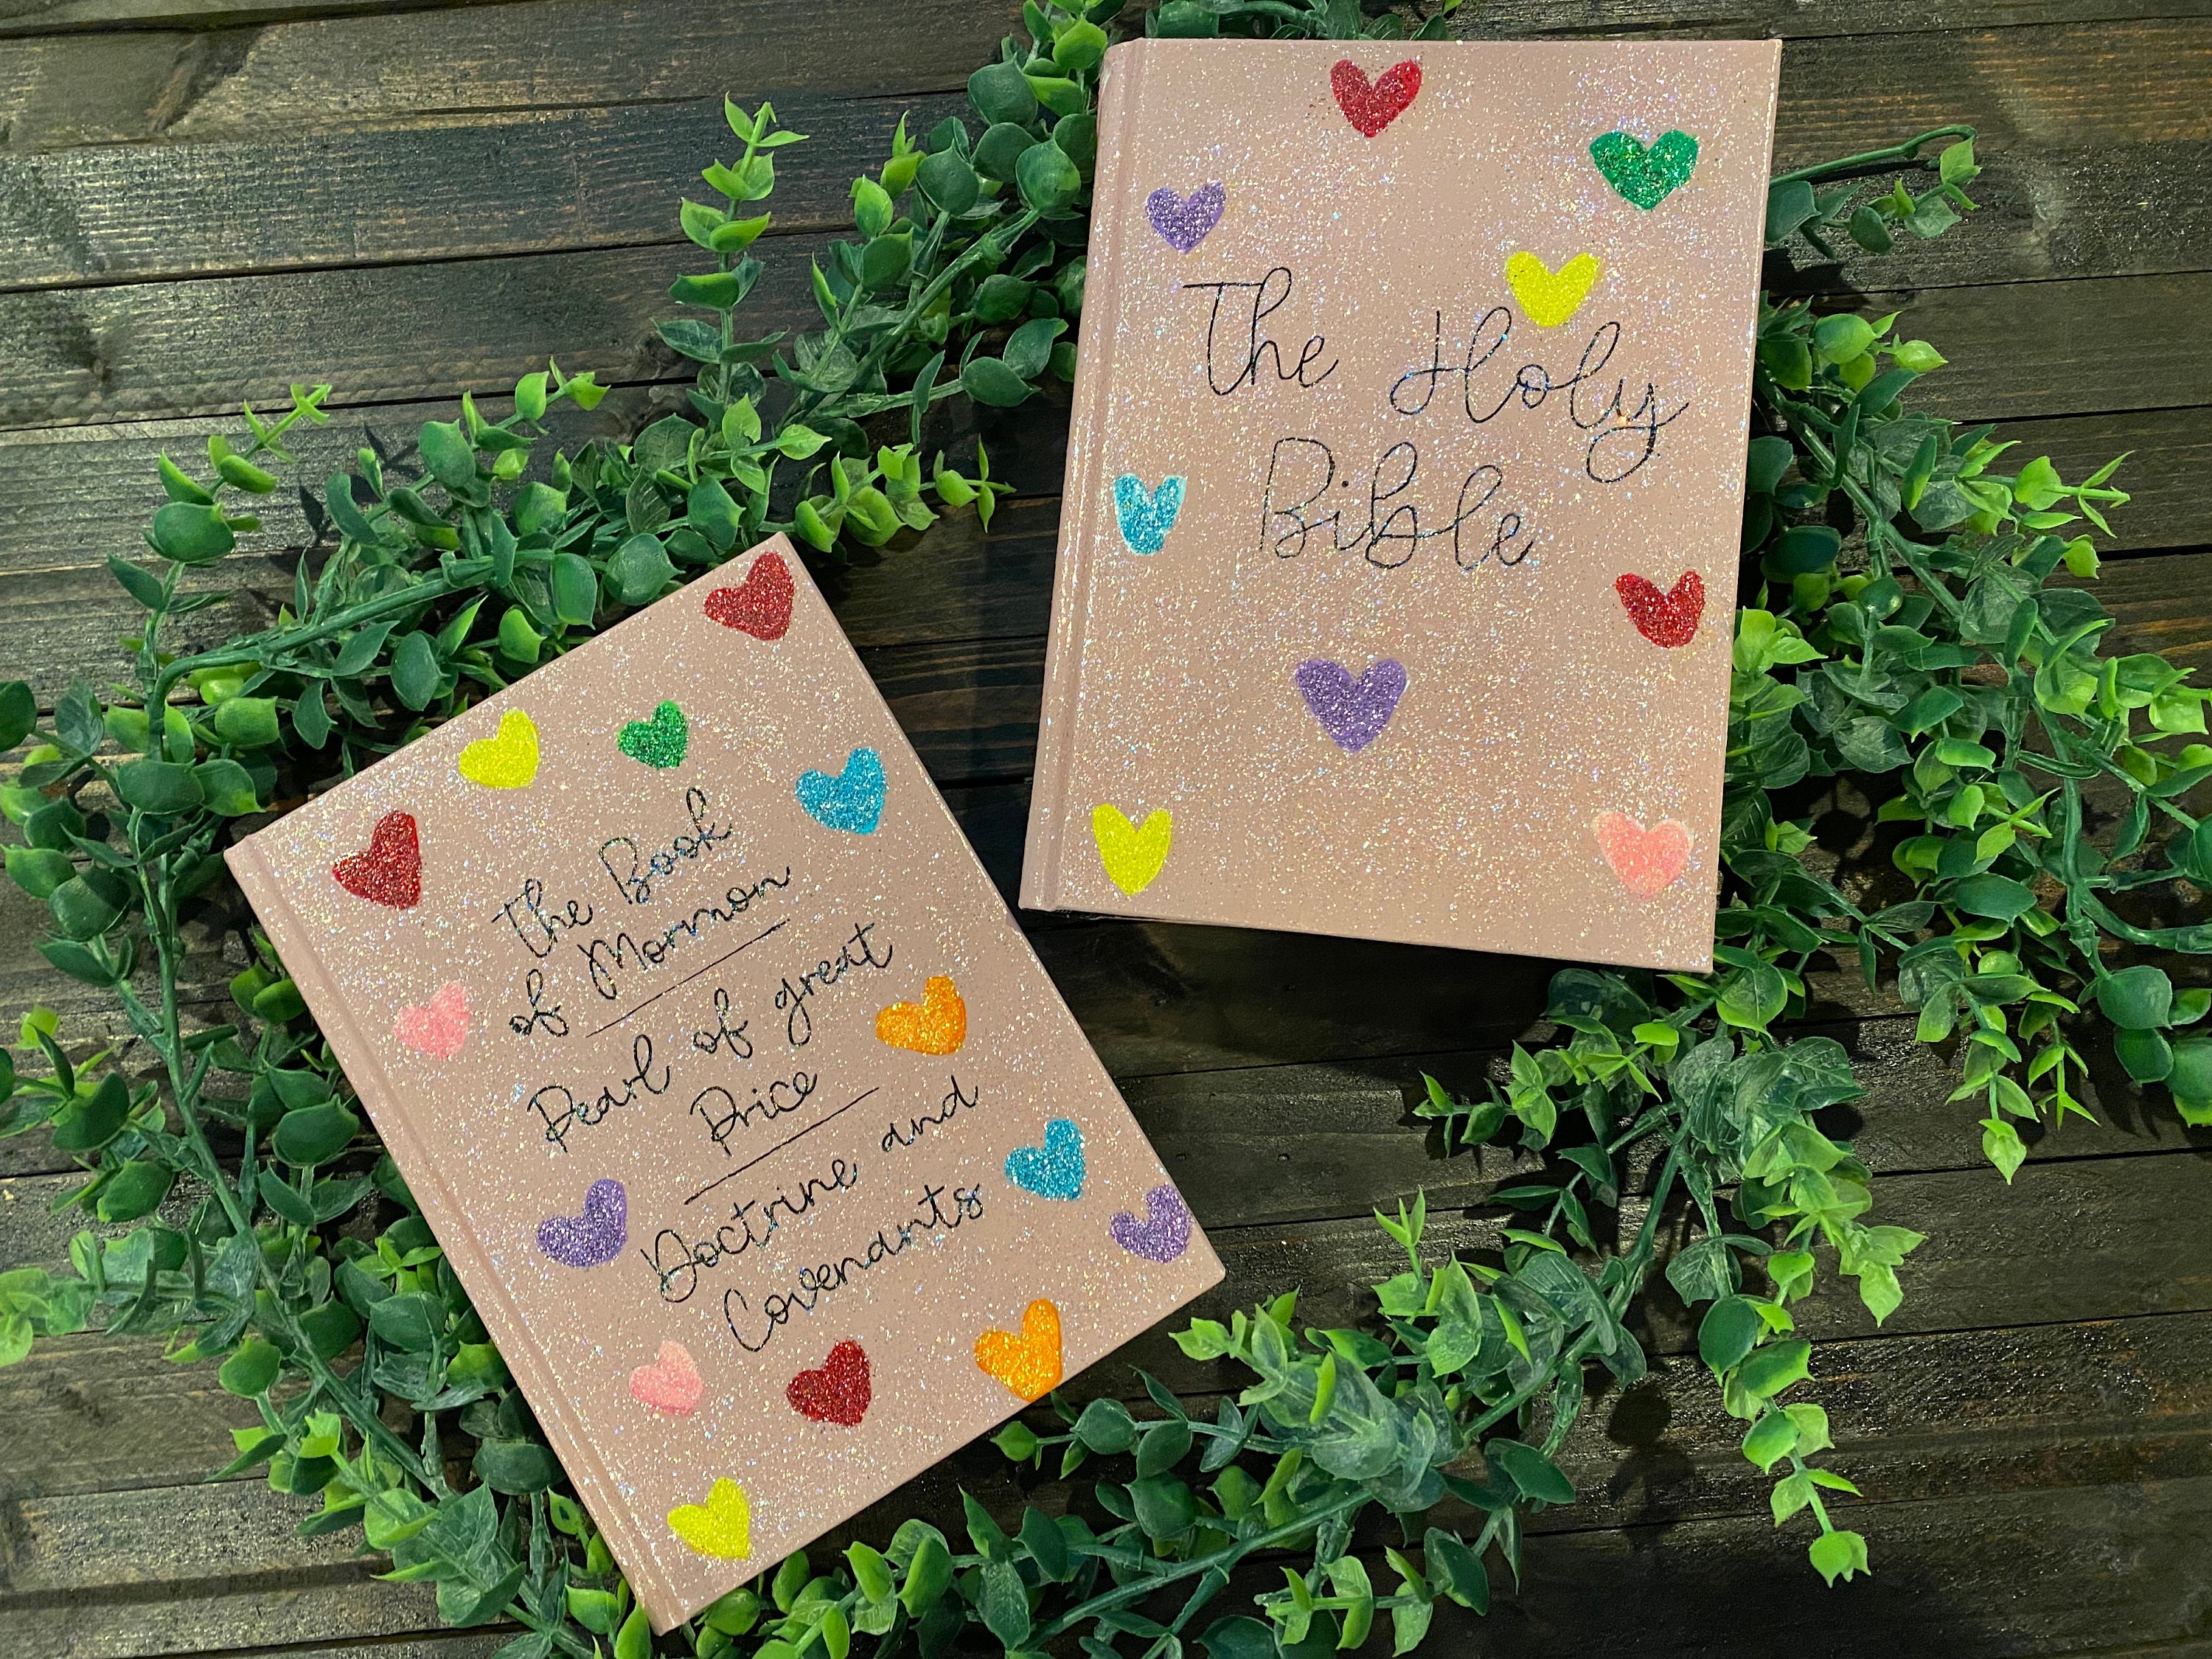 The Holy
Bible
The Book
of Mormon
Pearl of great
Price
Doctrine and
Covenants